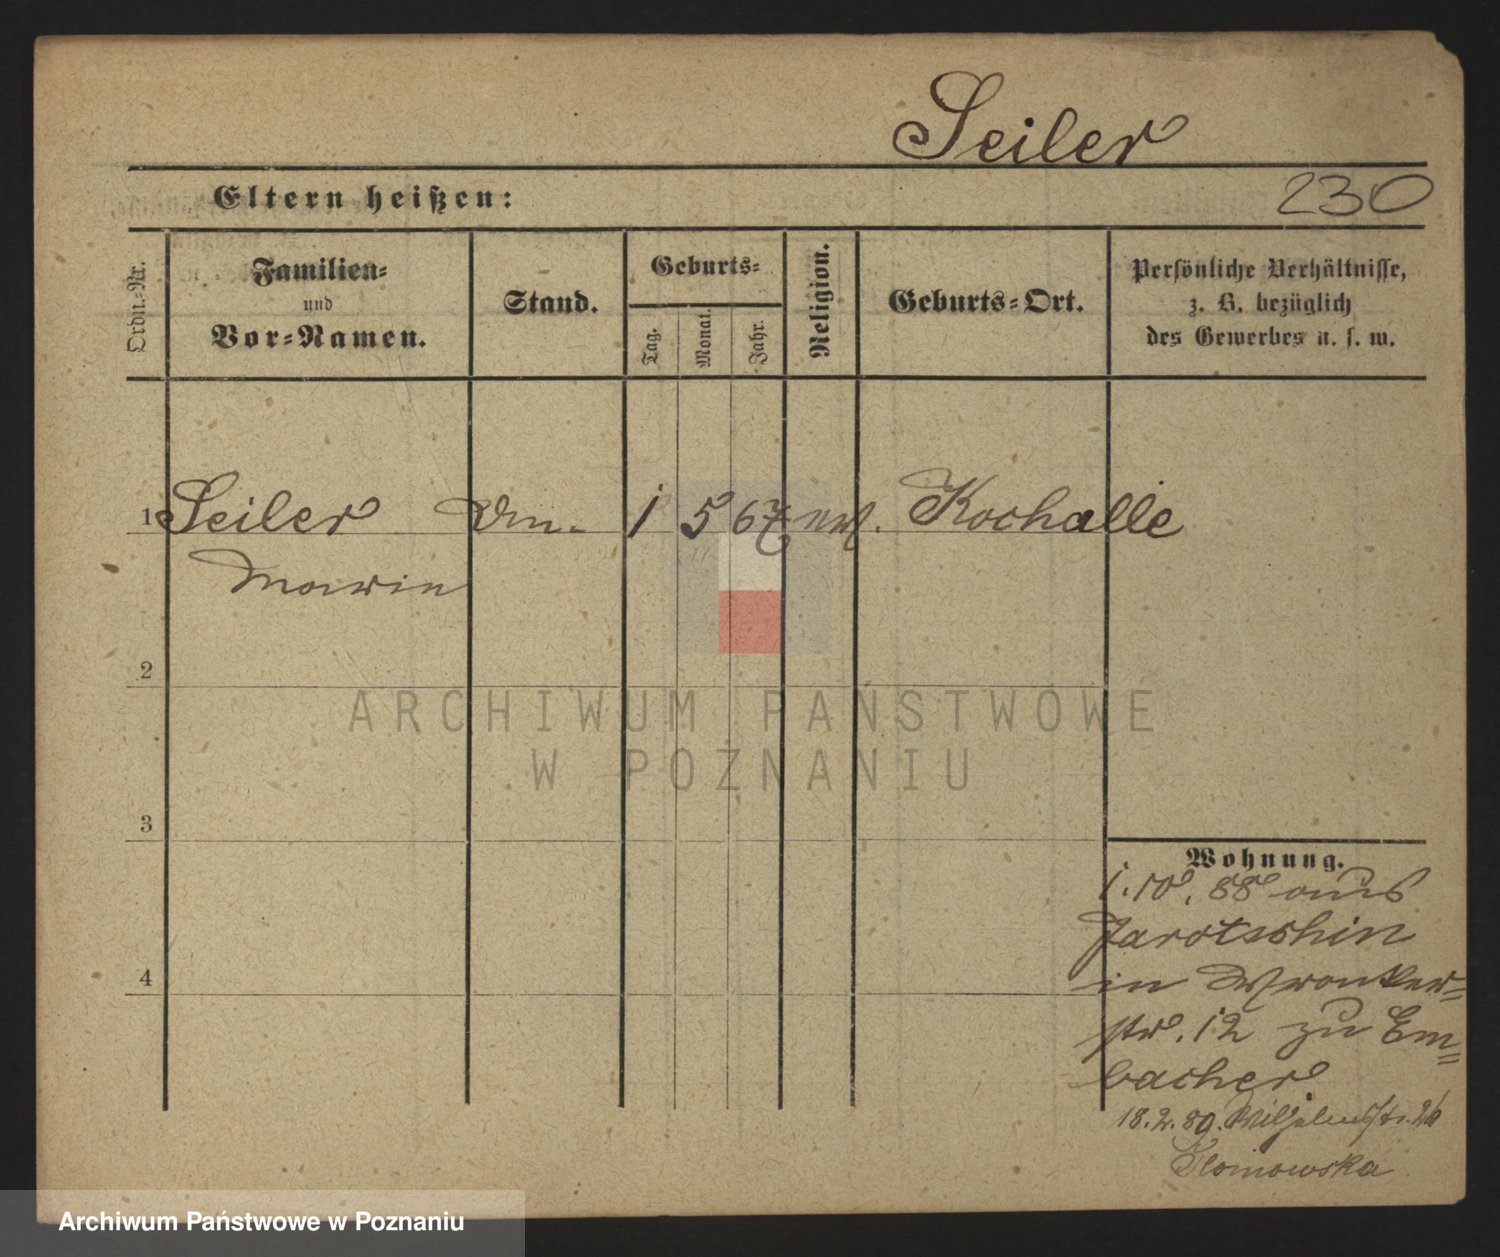 Seiler
Eltern heißen:
230
Ordn.-Nr.
Familien-
und
Vor-Namen.
Stand.
Geburts-
Tag.
Monat.
Jahr.
Religion.
Geburts-Ort.
Persönliche Verhältnisse,
z. B. bezüglich
des Gewerbes u. s. w.
1 Seiler 1 5 67 Kochalle
Marie
2
3
4
Wohnung.
1.10.88 aus
Jarotschin
in Wronker-
str. 12 zu Em-
bacher
18.2.89. Wilhelmstr. 26
Slomowska
ARCHIWUM PAŃSTWOWE
W POZNANIU
Archiwum Państwowe w Poznaniu